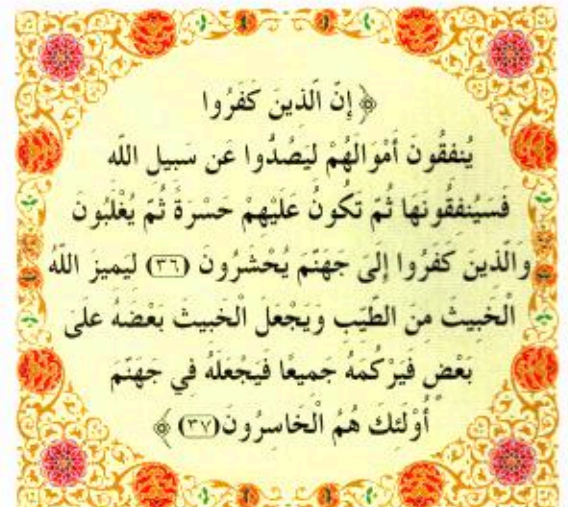 ﴿ إِنَّ الَّذِينَ كَفَرُوا
يُنفِقُونَ أَمْوَالَهُمْ لِيَصُدُّوا عَن سَبِيلِ اللَّهِ
فَسَيُنفِقُونَهَا ثُمَّ تَكُونُ عَلَيْهِمْ حَسْرَةً ثُمَّ يُغْلَبُونَ
وَالَّذِينَ كَفَرُوا إِلَى جَهَنَّمَ يُحْشَرُونَ (٣٦) لِيَمِيزَ اللَّهُ
الْخَبِيثَ مِنَ الطَّيِّبِ وَيَجْعَلَ الْخَبِيثَ بَعْضَهُ عَلَى
بَعْضٍ فَيَرْكُمَهُ جَمِيعًا فَيَجْعَلَهُ فِي جَهَنَّمَ
أُوْلَئِكَ هُمُ الْخَاسِرُونَ (٣٧) ﴾